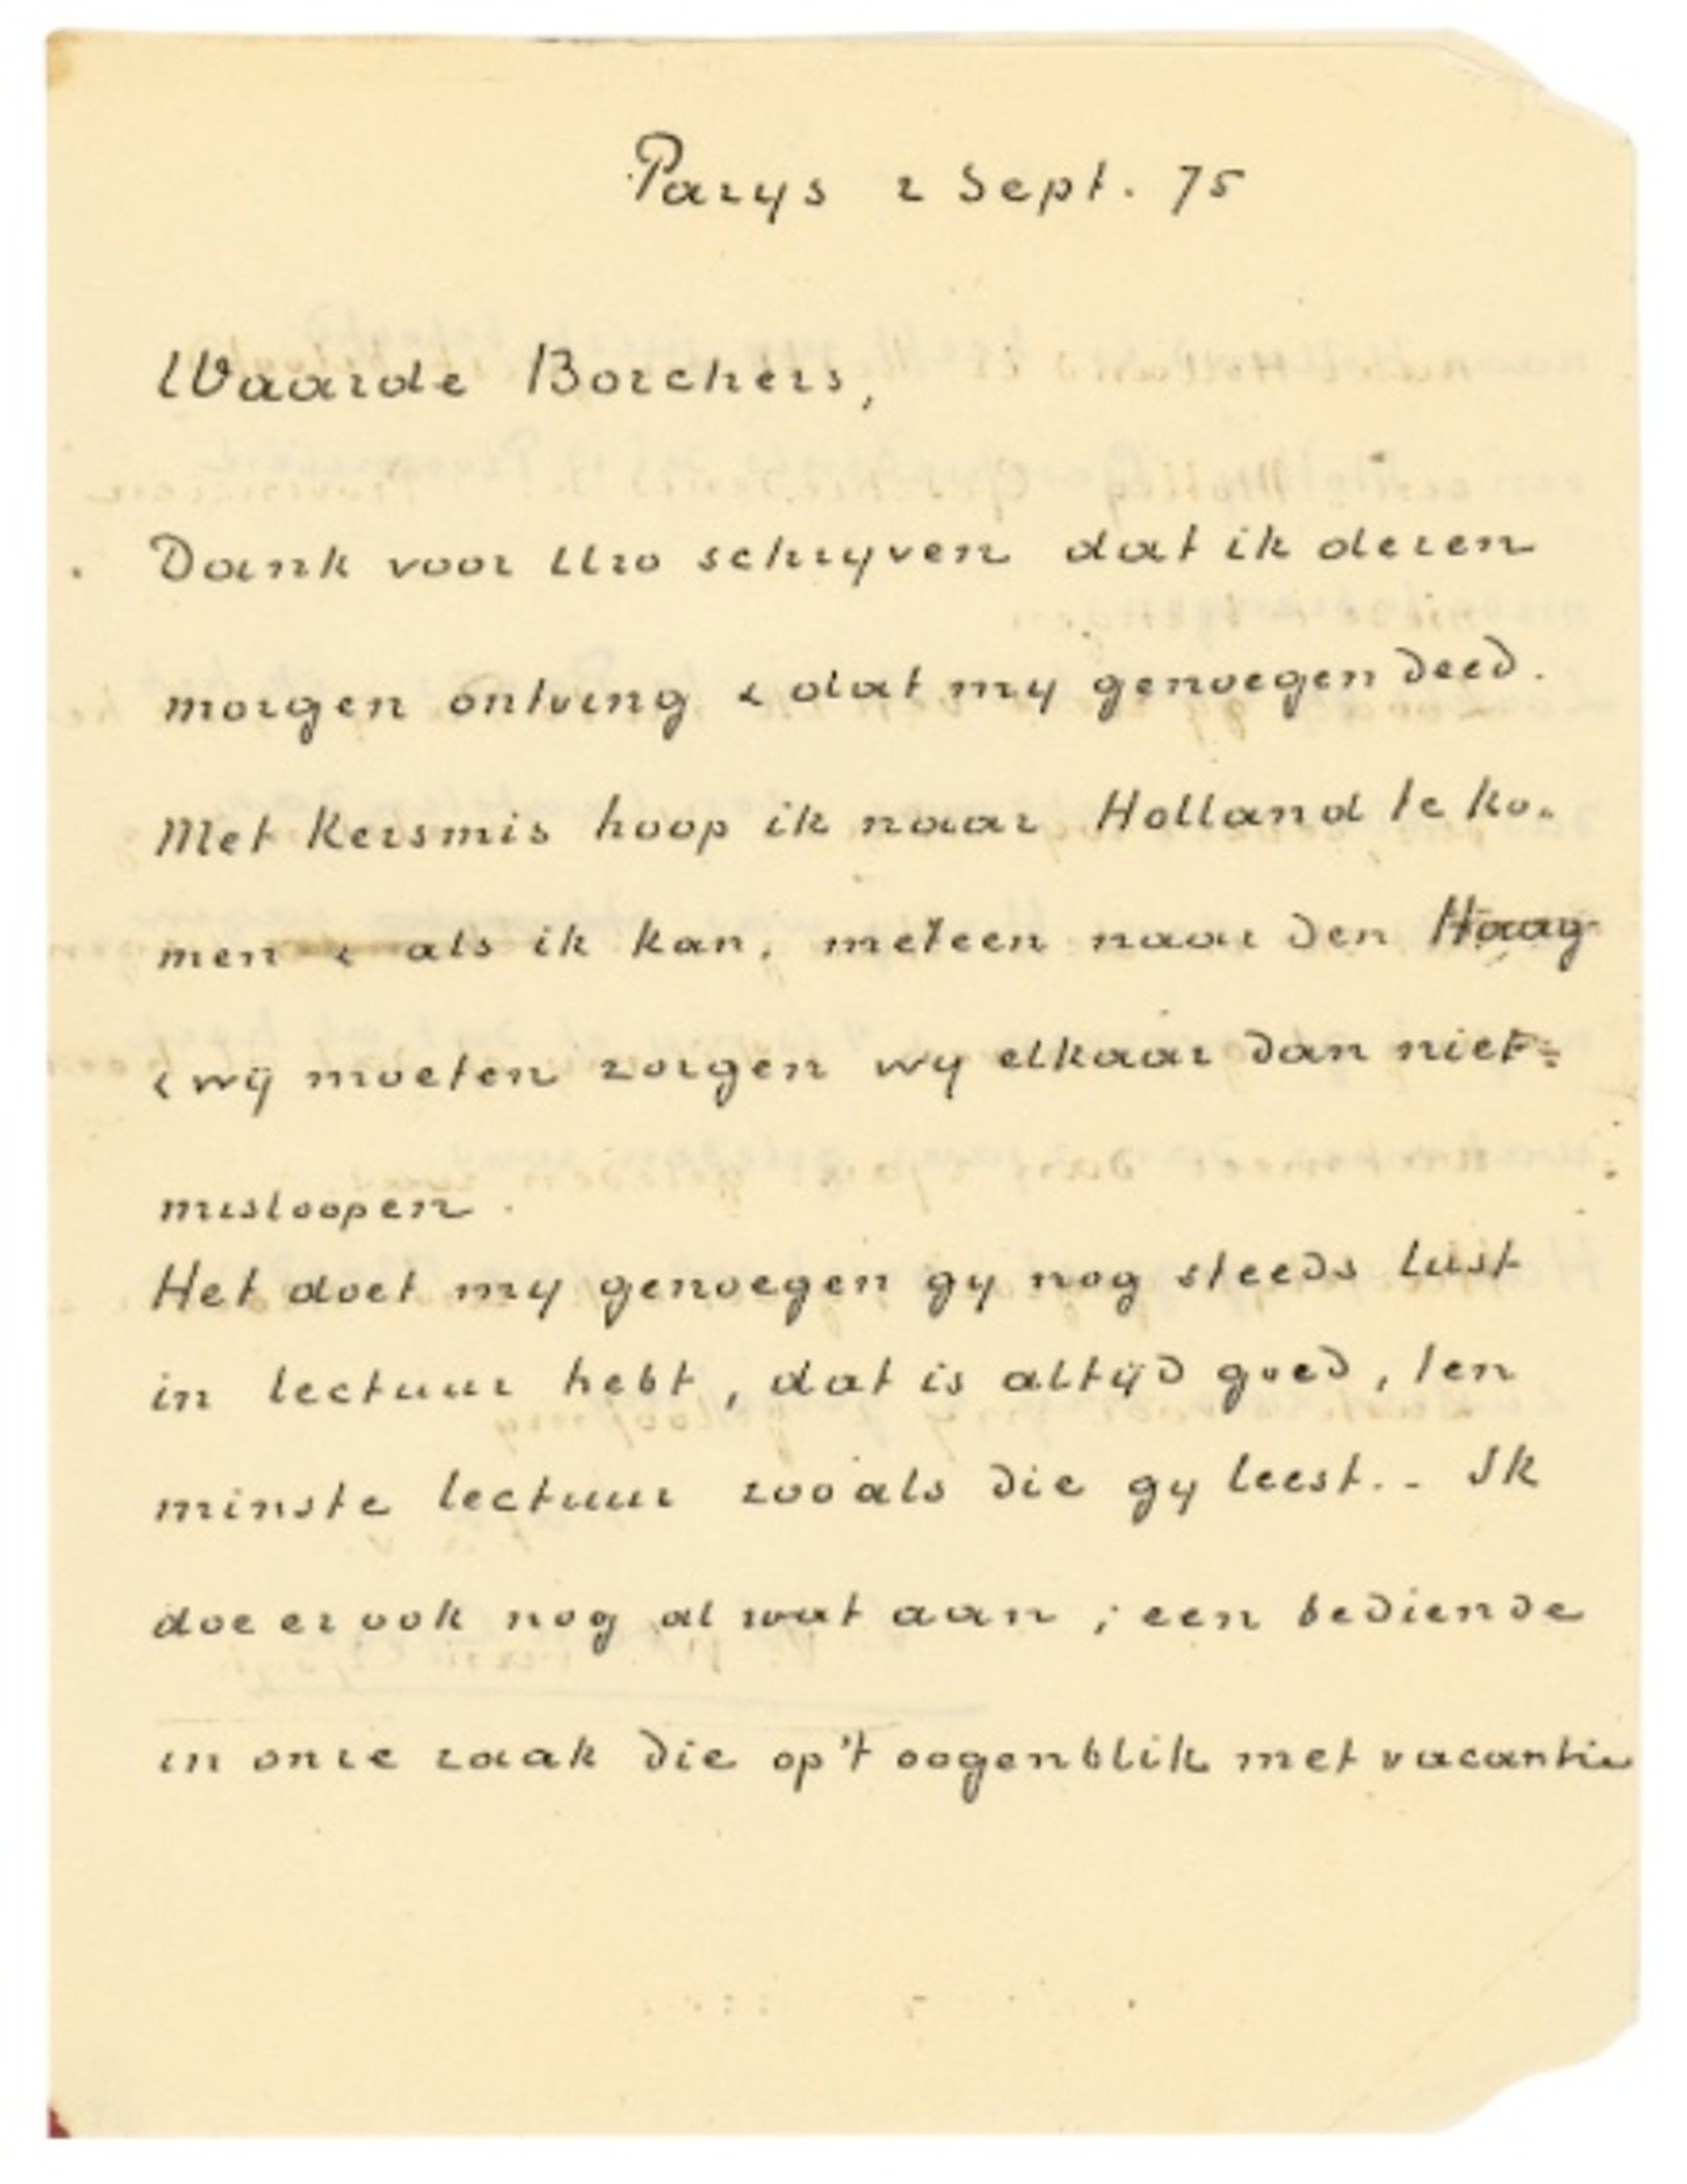 Parys 2 Sept. 75
Waarde Borchers,
Dank voor Uw schryven dat ik dezen
morgen ontving & dat my genoegen deed.
Met Kersmis hoop ik naar Holland te ko-
men & als ik kan, meteen naar den Haag
& wij moeten zorgen wy elkaar dan niet
misloopen.
Het doet my genoegen gy nog steeds lust
in lectuur hebt, dat is altijd goed, ten
minste lectuur zooals die gy leest.. Ik
doe er ook nog al wat aan; een bediende
in onze zaak die op 't oogenblik met vacantie